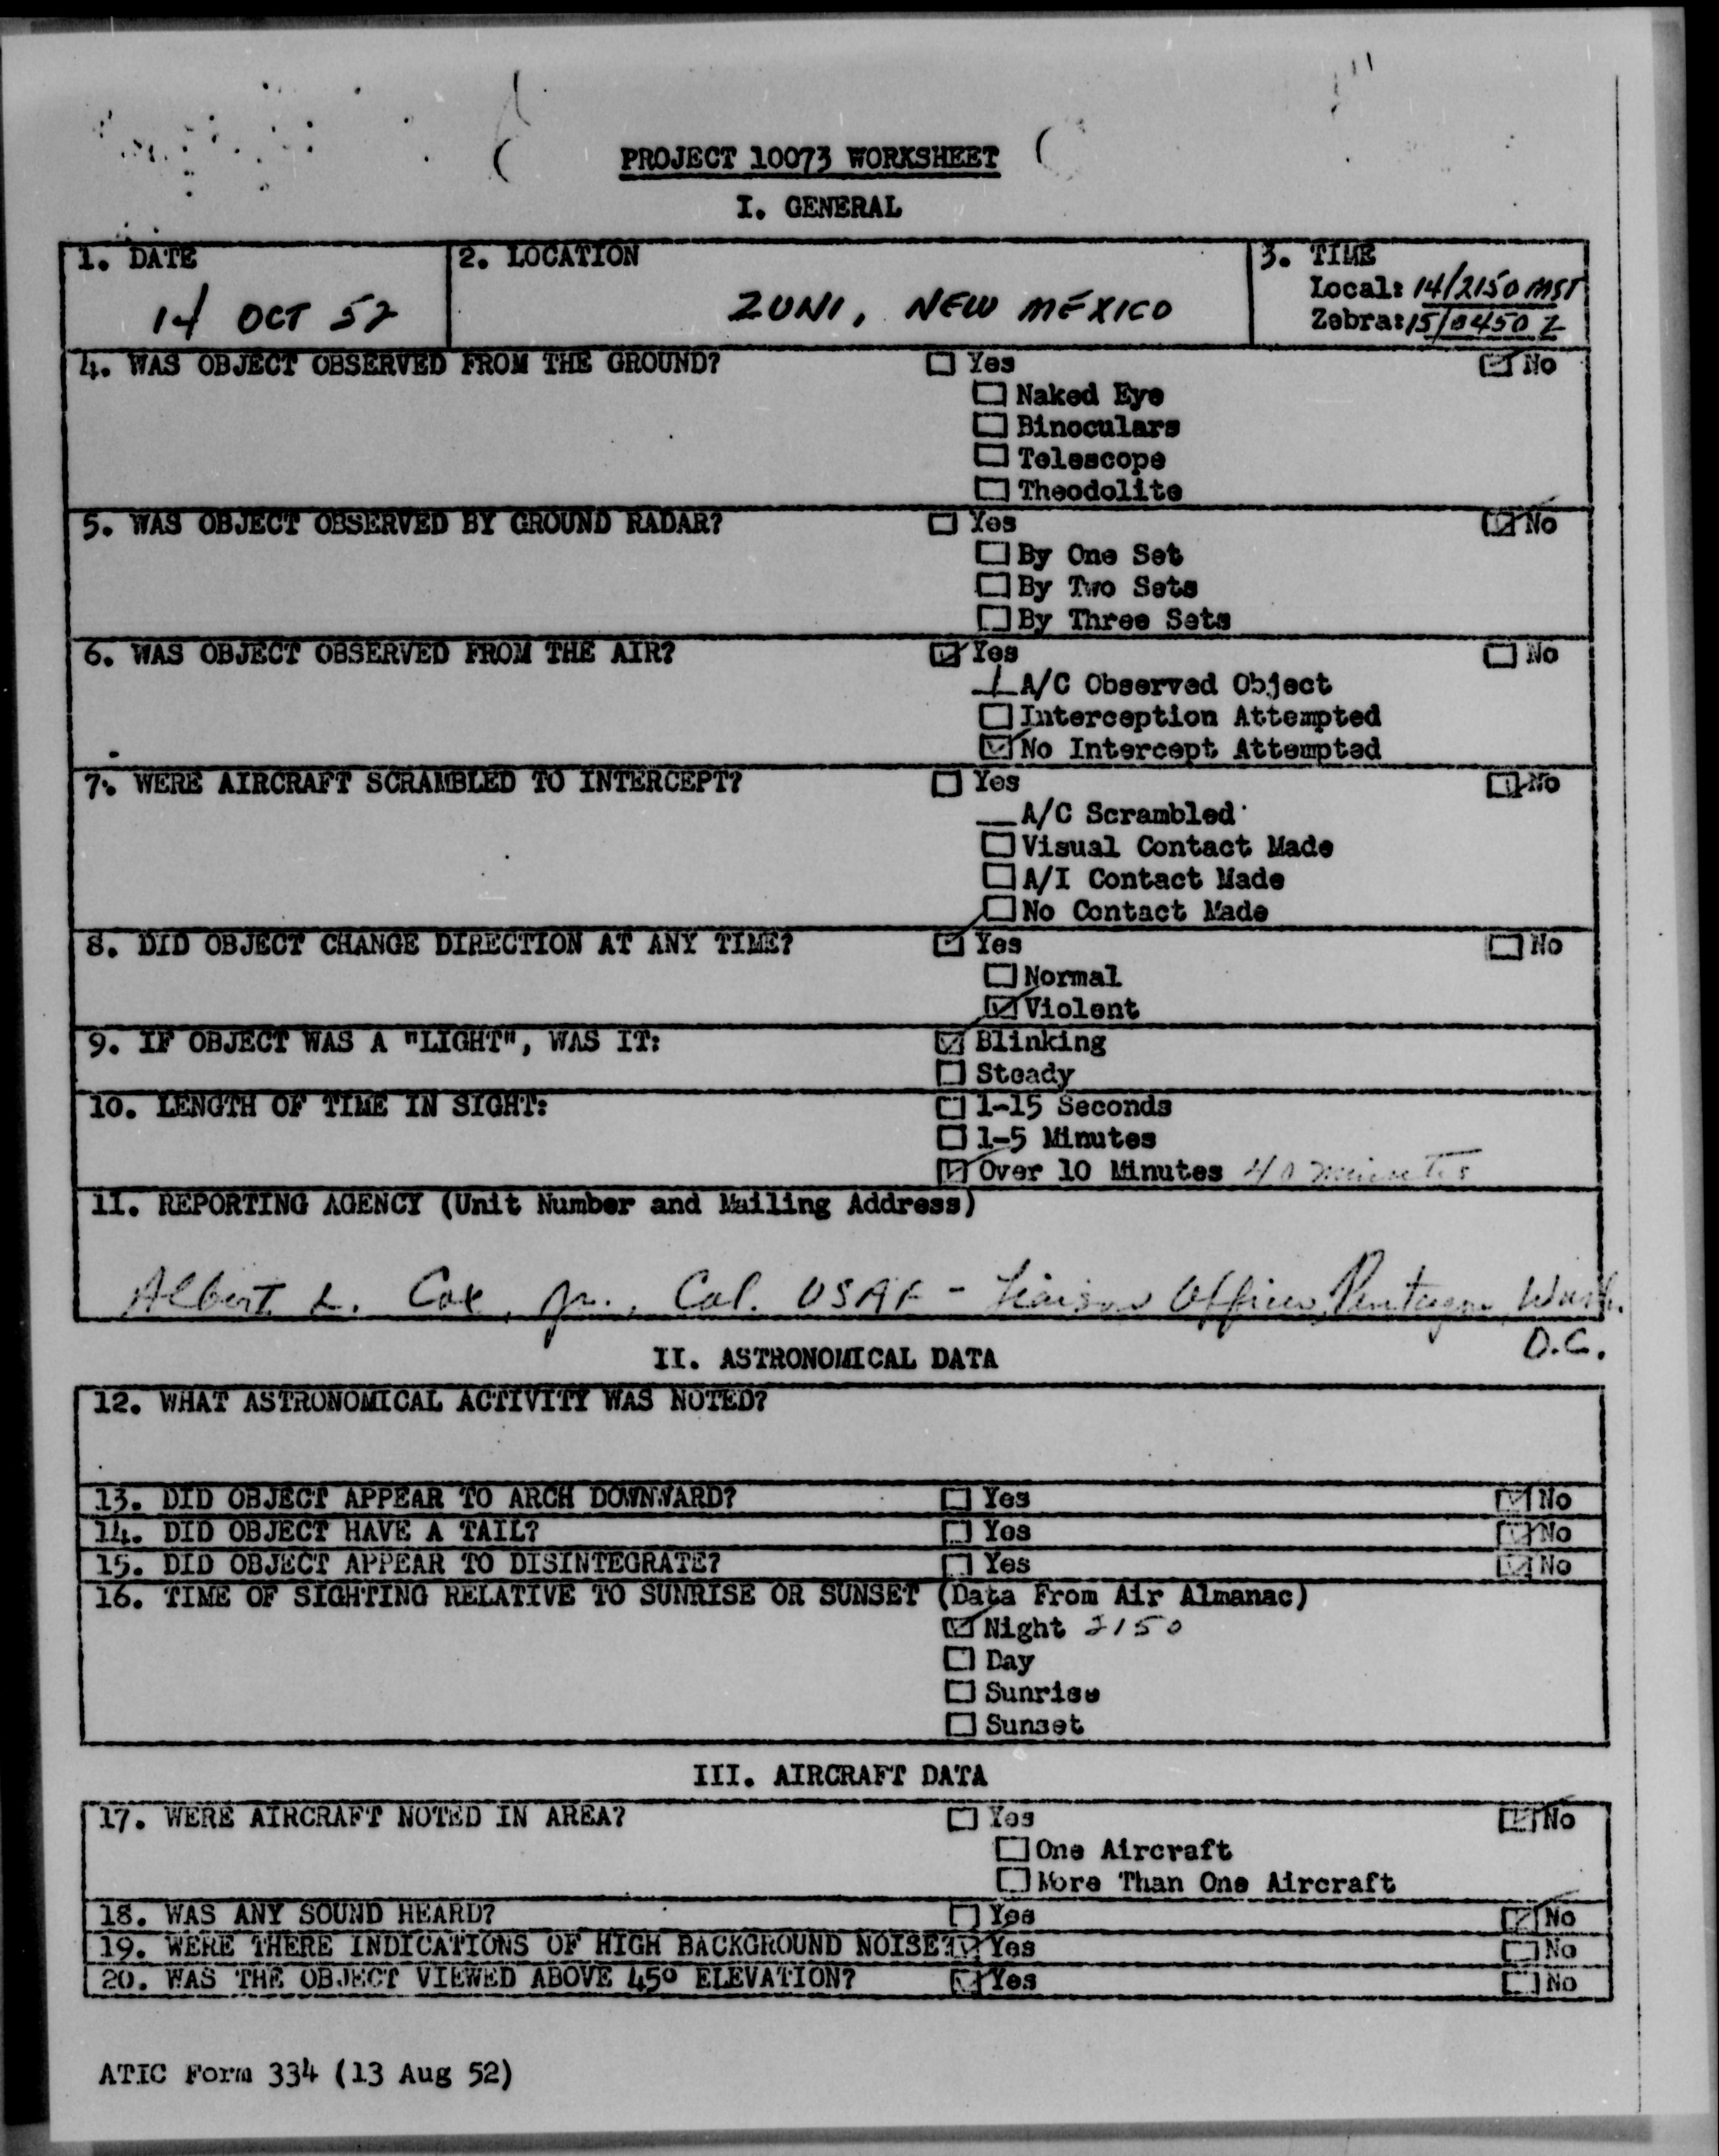 PROJECT 10073 WORKSHEET
I. GENERAL
1. DATE
14 OCT 52
2. LOCATION
ZUNI, NEW MEXICO
3. TIME
Local: 14/2150 MST
Zebra: 15/0450 Z
4. WAS OBJECT OBSERVED FROM THE GROUND? ☐ Yes ☑ No
☐ Naked Eye
☐ Binoculars
☐ Telescope
☐ Theodolite
5. WAS OBJECT OBSERVED BY GROUND RADAR? ☐ Yes ☑ No
☐ By One Set
☐ By Two Sets
☐ By Three Sets
6. WAS OBJECT OBSERVED FROM THE AIR? ☑ Yes ☐ No
1 A/C Observed Object
☐ Interception Attempted
☑ No Intercept Attempted
7. WERE AIRCRAFT SCRAMBLED TO INTERCEPT? ☐ Yes ☑ No
__ A/C Scrambled
☐ Visual Contact Made
☐ A/I Contact Made
☐ No Contact Made
8. DID OBJECT CHANGE DIRECTION AT ANY TIME? ☑ Yes ☐ No
☐ Normal
☑ Violent
9. IF OBJECT WAS A "LIGHT", WAS IT: ☑ Blinking
☐ Steady
10. LENGTH OF TIME IN SIGHT: ☐ 1-15 Seconds
☐ 1-5 Minutes
☑ Over 10 Minutes 40 minutes
11. REPORTING AGENCY (Unit Number and Mailing Address)
Albert L. Cox, Jr., Col. USAF - Liaison Office, Pentagon, Wash.
D.C.
II. ASTRONOMICAL DATA
12. WHAT ASTRONOMICAL ACTIVITY WAS NOTED?
13. DID OBJECT APPEAR TO ARCH DOWNWARD? ☐ Yes ☑ No
14. DID OBJECT HAVE A TAIL? ☐ Yes ☑ No
15. DID OBJECT APPEAR TO DISINTEGRATE? ☐ Yes ☑ No
16. TIME OF SIGHTING RELATIVE TO SUNRISE OR SUNSET (Data From Air Almanac)
☑ Night 2150
☐ Day
☐ Sunrise
☐ Sunset
III. AIRCRAFT DATA
17. WERE AIRCRAFT NOTED IN AREA? ☐ Yes ☑ No
☐ One Aircraft
☐ More Than One Aircraft
18. WAS ANY SOUND HEARD? ☐ Yes ☑ No
19. WERE THERE INDICATIONS OF HIGH BACKGROUND NOISE? ☑ Yes ☐ No
20. WAS THE OBJECT VIEWED ABOVE 45° ELEVATION? ☑ Yes ☐ No
ATIC Form 334 (13 Aug 52)